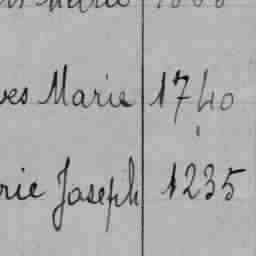 ves Marie 1740
rie Joseph 1235